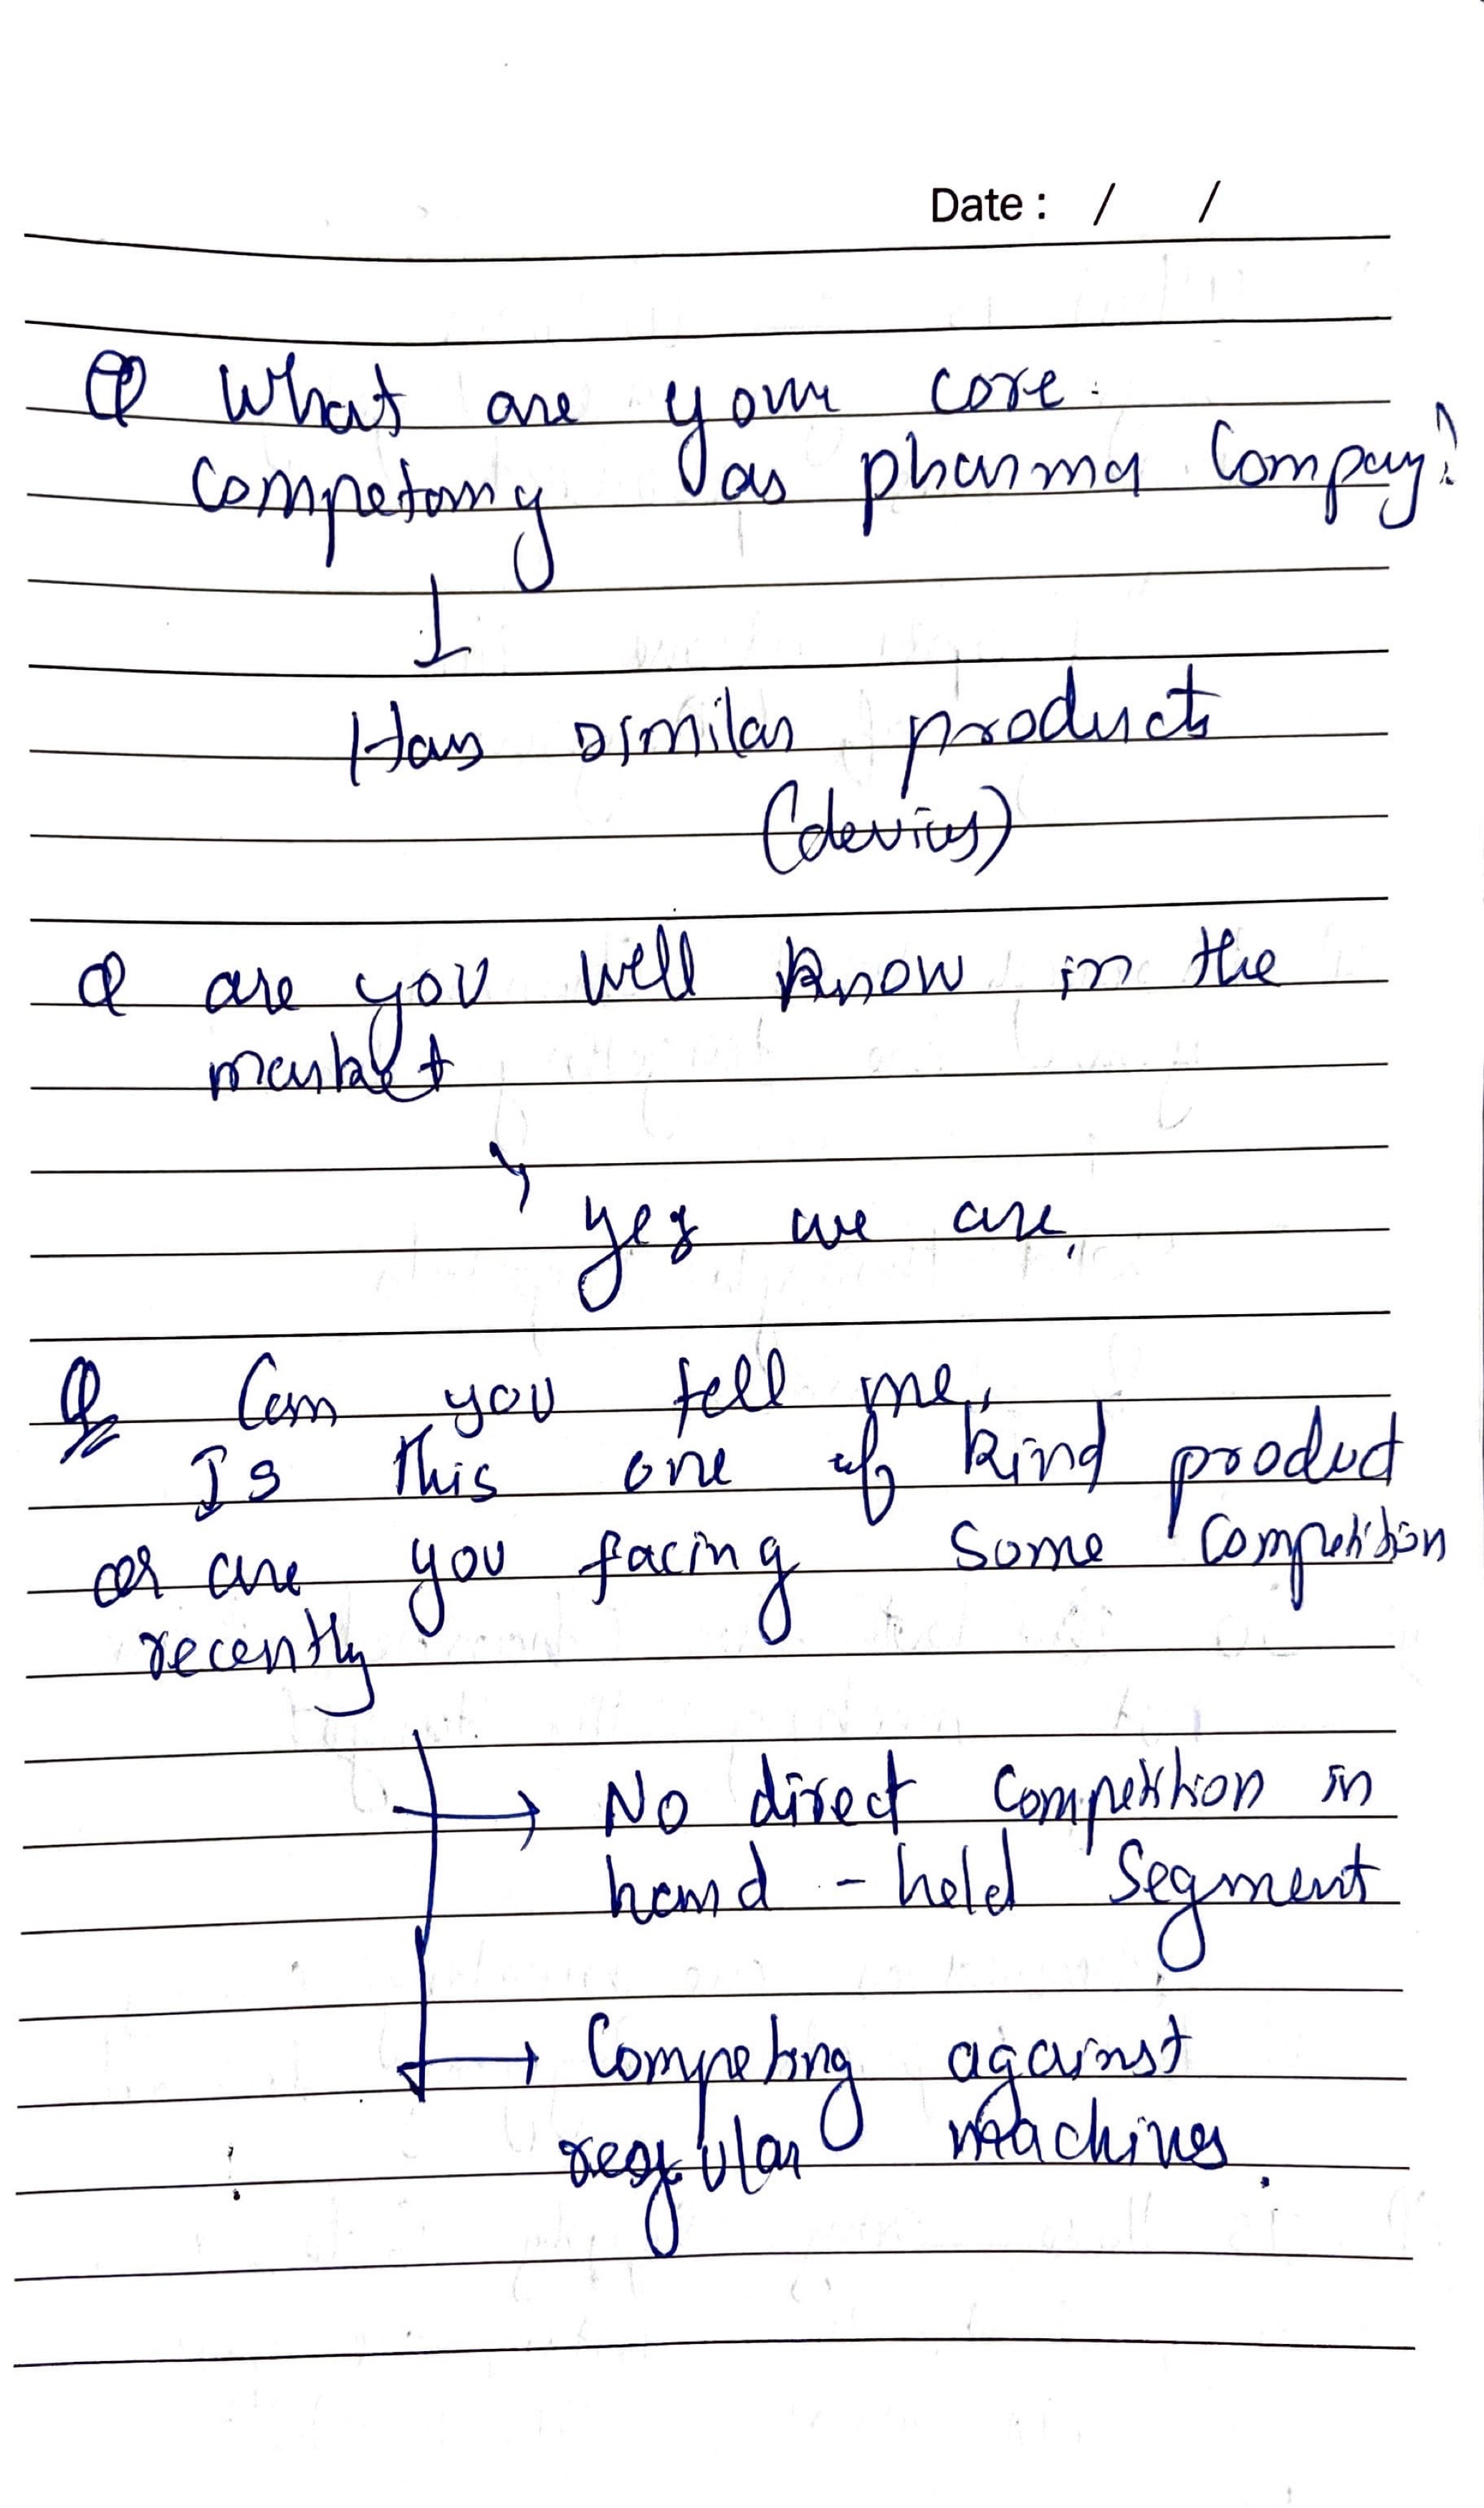 Date : / /
Q What are your core
competamy as pharma Compay?
Has similar products
(devices)
Q are you well know in the
market
yes we are.
Q Can you tell me,
Is this one of kind product
or are you facing some Competition
recently
No direct Competition in
hand - held Segment
Competing against
regular machines.